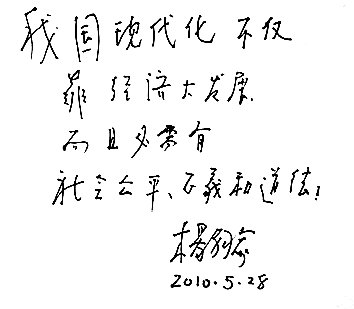 我国现代化不仅
靠经济大发展
而且必需有
社会公平、正義和道德!
2010.5.28